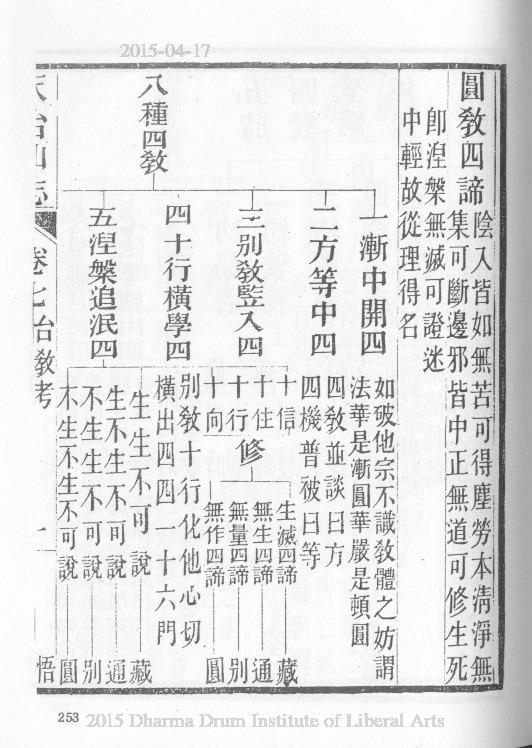 2015-04-17
圓敎四諦
陰入皆如無苦可得塵勞本淸淨無
集可斷邊邪皆中正無道可修生死
卽涅槃無滅可證迷
中輕故從理得名
八種四敎
一漸中開四
如破他宗不識敎體之妨謂
法華是漸圓華嚴是頓圓
二方等中四
四敎並談曰方
四機普破曰等
三別敎竪入四
十信 修 生滅四諦 藏
十住 無生四諦 通
十行 無量四諦 別
十向 無作四諦 圓
四十行橫學四
別敎十行化他心切
橫出四四一十六門
五涅槃追泯四
生生不可說 藏
生不生不可說 通
不生生不可說 別
不生不生不可說 圓
天台山志
卷七台敎考
悟
253 2015 Dharma Drum Institute of Liberal Arts